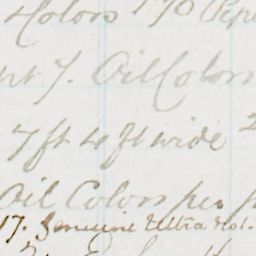 Colors
7. Oil Colors
7 ft 4 ft wide 2
Oil Colors per
17. Genuine Ultra